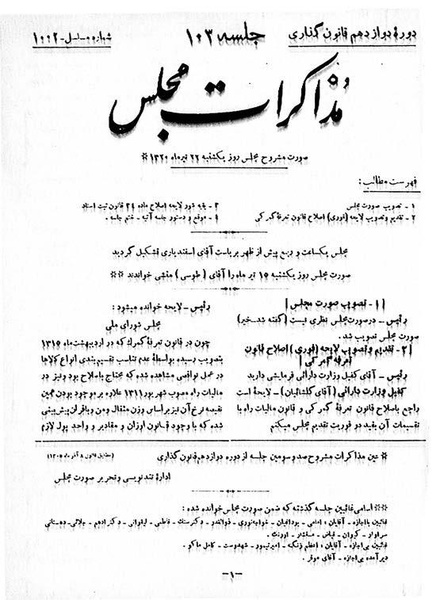 دورهٔ دوازدهم قانون گذاری
جلسه ۱۰۳
شماره مسلسل - ۱۰۰۲
مذاکرات مجلس
صورت مشروح مجلس روز یکشنبه ۲۲ تیر ماه ۱۳۲۰ *
فهرست مطالب:
۱ - تصویب صورت مجلس
۲ - تقدیم و تصویب لایحه (فوری) اصلاح قانون تعرفهٔ گمرکی
۳ - بقیه شور لایحه اصلاح ماده ۳۴ قانون ثبت اسناد
۴ - موقع و دستور جلسه آتیه - ختم جلسه
مجلس یکساعت و ربع پیش از ظهر بریاست آقای اسفندیاری تشکیل گردید
صورت مجلس روز یکشنبه ۱۵ تیر ماه را آقای (طوسی) منشی خواندند *
[ ۱ - تصویب صورت مجلس ]
رئیس - در صورت مجلس نظری نیست (گفته شد - خیر)
صورت مجلس تصویب شد.
[ ۲ - تقدیم و تصویب لایحه (فوری) اصلاح قانون
تعرفه گمرکی ]
رئیس - آقای کفیل وزارت دارائی فرمایشی دارید
کفیل وزارت دارائی (آقای گلشائیان) - لایحهٔ است
راجع باصلاح قانون تعرفهٔ گمرکی و قانون مالیات راه با
تقسیمات آن بقید دو فوریت تقدیم مجلس میکنم
رئیس - لایحه خوانده میشود:
مجلس شورای ملی
چون در قانون تعرفهٔ گمرک که در اردیبهشت ماه ۱۳۱۵
بتصویب رسیده بواسطهٔ عدم تناسب تقسیم بندی انواع کالاها
در عمل نواقصی مشاهده شده که محتاج باصلاح بود و نیز در
مالیات راه مصوب مهر ۱۳۱۱ علاوه بر موجود بودن همین
نقیصه نرخ آن نیز بر اساس وزن مثقال و من و باقران پیش بینی
شده که با وجود قانون اوزان و مقادیر و واحد پول لازم
* عین مذاکرات مشروح صد و سومین جلسه از دوره دوازدهم قانون گذاری
اداره تندنویسی و تحریر صورت مجلس
* اسامی غائبین جلسه گذشته که ضمن صورت مجلس خوانده شده:
غائبین بی اجازه - آقایان:
دیر آمده بی اجازه - آقای موقر.
- ۱ -